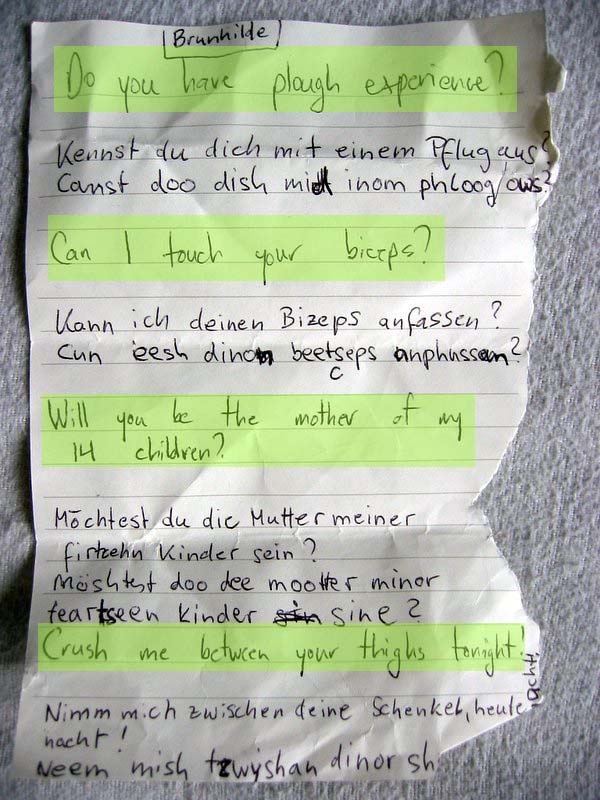 Brunhilde
Do you have plough experience?
Kennst du dich mit einem Pflug aus?
Canst doo dish mit inom phloog ows?
Can I touch your biceps?
Kann ich deinen Bizeps anfassen?
Cun eesh dinon beetseps anphussen?
c
Will you be the mother of my
14 children?
Möchtest du die Mutter meiner
firtzehn Kinder sein?
Möshtest doo dee mootter minor
feartseen kinder sine?
Crush me between your thighs tonight!
Nimm mich zwischen deine Schenkel, heute
nacht!
nacht!
Neem mish tzwyshan dinor sh